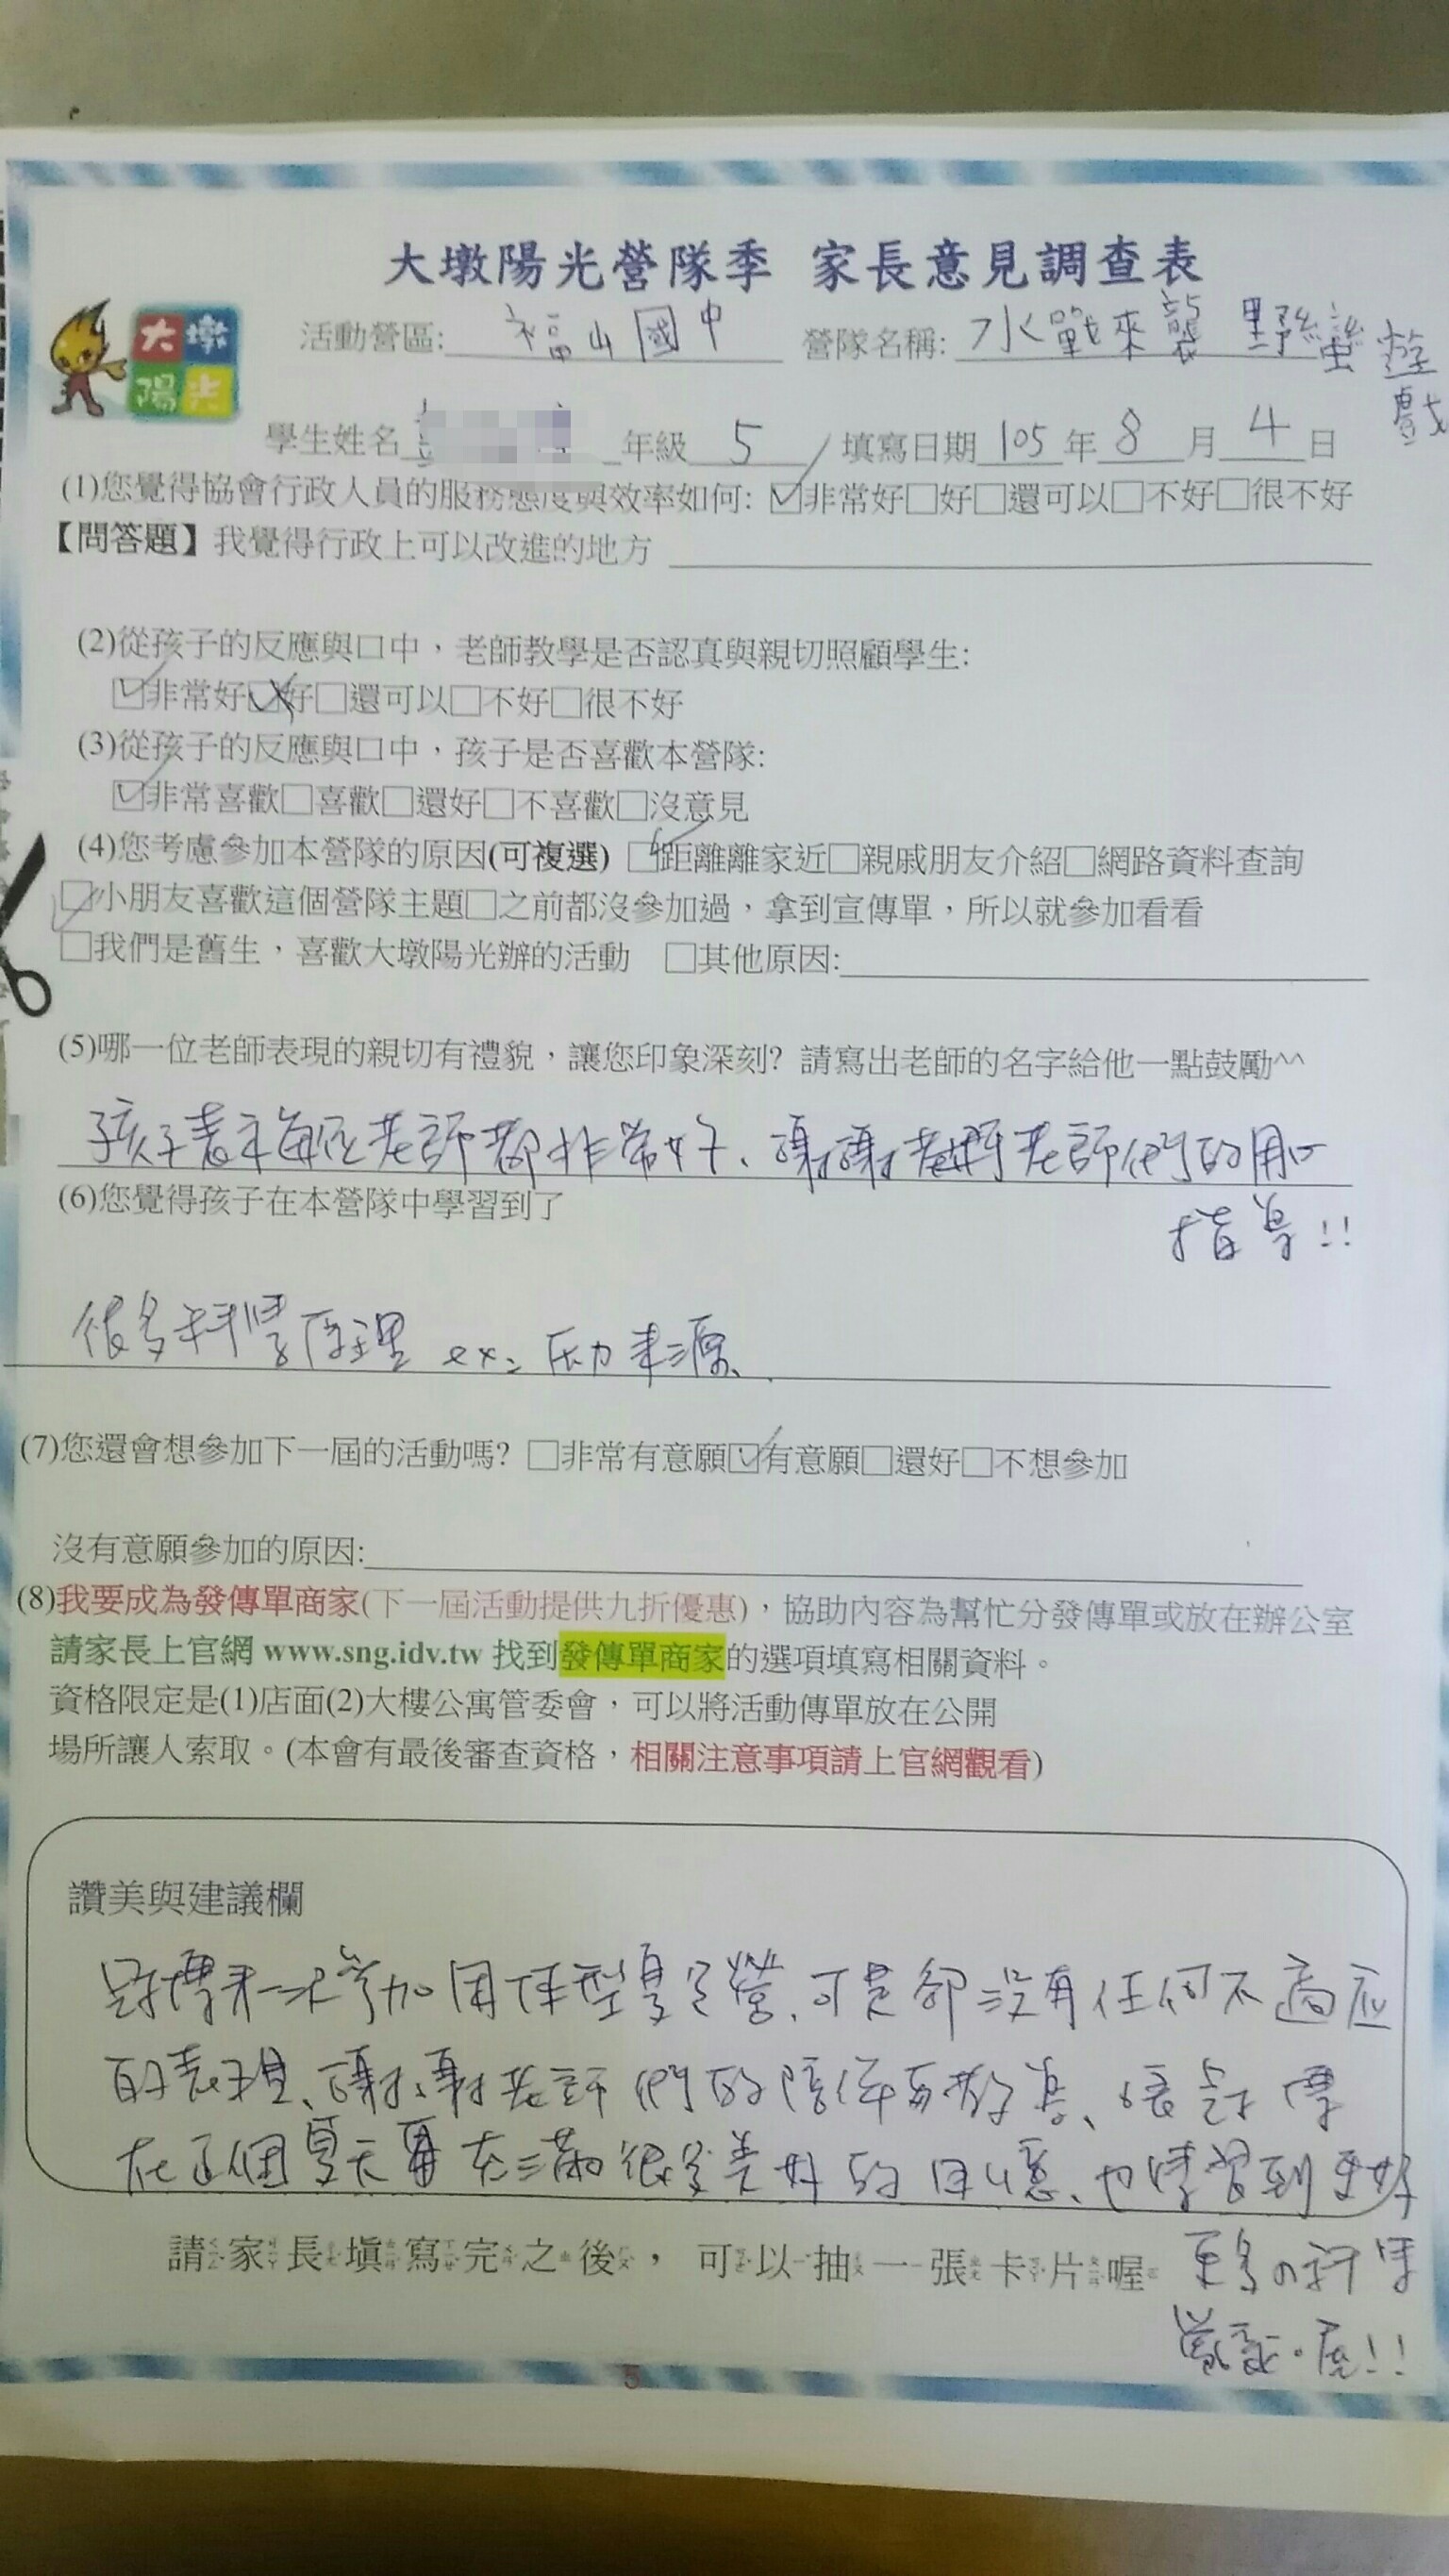 大墩陽光營隊季 家長意見調查表
大墩
陽光
活動營區: 福山國中 營隊名稱: 水戰來襲 野蠻遊戲
學生姓名 年級 5 填寫日期 105 年 8 月 4 日
(1)您覺得協會行政人員的服務態度與效率如何: ☑非常好□好□還可以□不好□很不好
【問答題】我覺得行政上可以改進的地方
(2)從孩子的反應與口中，老師教學是否認真與親切照顧學生:
☑非常好☒好□還可以□不好□很不好
(3)從孩子的反應與口中，孩子是否喜歡本營隊:
☑非常喜歡□喜歡□還好□不喜歡□沒意見
(4)您考慮參加本營隊的原因(可複選) ☑距離離家近□親戚朋友介紹□網路資料查詢
☑小朋友喜歡這個營隊主題□之前都沒參加過，拿到宣傳單，所以就參加看看
□我們是舊生，喜歡大墩陽光辦的活動 □其他原因:
(5)哪一位老師表現的親切有禮貌，讓您印象深刻? 請寫出老師的名字給他一點鼓勵^^
孩子表示每位老師都非常好、謝謝老師們的用心
(6)您覺得孩子在本營隊中學習到了
指導!!
很多科學原理 ex: 压力來源、
(7)您還會想參加下一屆的活動嗎? □非常有意願☑有意願□還好□不想參加
沒有意願參加的原因:
(8)我要成為發傳單商家(下一屆活動提供九折優惠)，協助內容為幫忙分發傳單或放在辦公室
請家長上官網 www.sng.idv.tw 找到發傳單商家的選項填寫相關資料。
資格限定是(1)店面(2)大樓公寓管委會，可以將活動傳單放在公開
場所讓人索取。(本會有最後審查資格，相關注意事項請上官網觀看)
讚美與建議欄
第一次參加團体型夏令營、可是卻沒有任何不適应
的表現、謝謝老師們的陪伴與教導、讓
在這個夏天裏充滿很多美好的回憶、也學習到更好
請家長填寫完之後，可以抽一張卡片喔
更多の科學
常識。喔!!
5